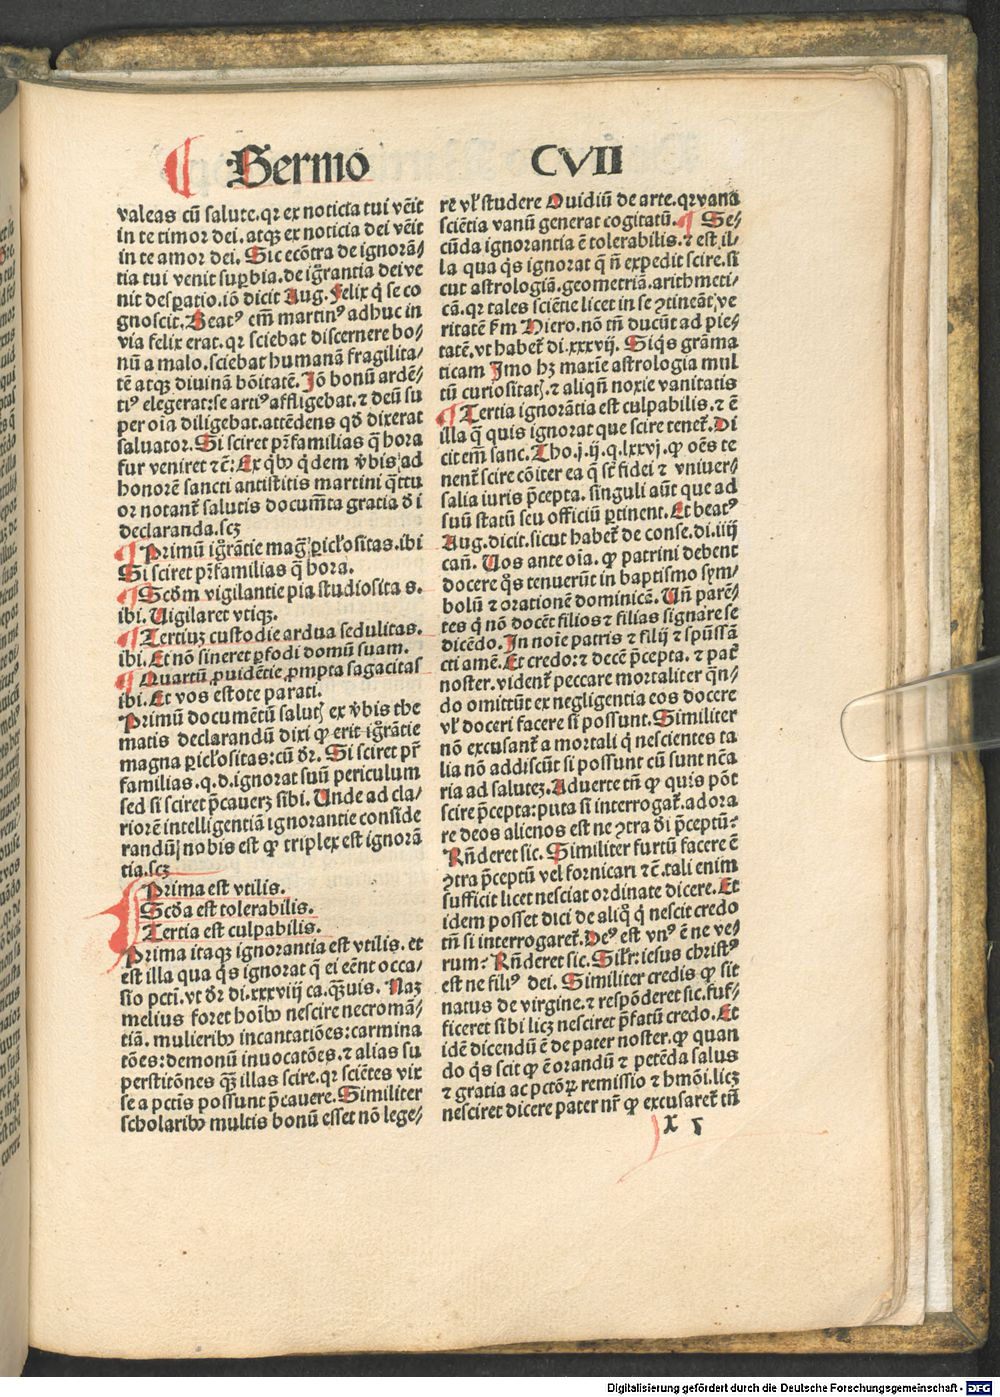 Sermo CVII
valeas cū salute. qꝛ ex noticia tui vēit
in te timor dei. atqꝫ ex noticia dei vēit
in te amor dei. Sic ecōtra de ignorā-
tia tui venit suꝑbia. de igr̄antia dei ve
nit desꝑatio. iō dicit Aug. Felix q̇ se co
gnoscit. Beatꝰ em̄ martinꝰ adhuc in
via felix erat. qꝛ sciebat discernere bo-
nū a malo. sciebat humanā fragilita-
tē atqꝫ diuinā bōitatē. Jō bonū ardē-
tiꝰ elegerat: se artiꝰ affligebat. ⁊ deū su
per oīa diligebat. attēdens qd̄ dixerat
saluator. Si sciret pr̄familias q̄ hora
fur veniret ⁊ē: Ex q̇bꝰ q̇dem v̄bis ad
honorē sancti antistitis martini q̄ttu
or notant̄ salutis documn̄ta gratia d̄i
declaranda. scꝫ
Primū igr̄ātie mag ꝑicl̓ositas. ibi
Si sciret pr̄familias q̄ hora.
Scd̄m vigilantie pia studiositas.
ibi. Uigilaret vtiqꝫ.
Tertiuꝫ custodie ardua sedulitas.
ibi. Et nō sineret ꝑfodi domū suam.
Quartū ꝓuidētie ꝓmpta sagacitas
ibi. Et vos estote parati.
Primū documētū salutꝭ ex v̄bis the
matis declarandū dixi ꝙ erit igr̄ātie
magna ꝑicl̓ositas: cū dr̄. Si sciret pr̄
familias. q. d. ignorat suū periculum
sed si sciret p̄cauerꝫ sibi. Unde ad cla-
riorē intelligentiā ignorantie conside
randū nobis est ꝙ triplex est ignorā
tia. scꝫ
Prima est vtilis.
Scd̄a est tolerabilis.
Tertia est culpabilis.
Prima itaqꝫ ignorantia est vtilis. et
est illa qua q̇s ignorat q̄ ei eēnt occa-
sio pctī. vt dr̄ di. xxxviij ca. q̄ꝫuis. Naꝫ
melius foret hoībꝰ nescire necromā-
tiā. mulieribꝰ incantatiōes: carmina
tōes: demonū inuocatōes. ⁊ alias su
perstitōnes qꝫ illas scire. qꝛ sciētes vix
se a pctīs possunt p̄cauere. Similiter
scholaribꝰ multis bonū esset nō lege-
re vl̓ studere Ouidiū de arte. qꝛ vana
sciētia vanū generat cogitatū. Se-
cūda ignorantia ē tolerabilis. ⁊ est il-
la qua q̇s ignorat q̄ nō expedit scire. si
cut astrologiā. geometriā. arithmeti-
cā. qꝛ tales sciētie licet in se ꝯtineāt ve
ritatē ẜm Hiero. nō tn̄ ducūt ad pie-
tatē. vt habet̄ di. xxxvij. Siq̇s grāma
ticam Jmo hꝫ maxīe astrologia mul
tū curiositatꝭ. ⁊ aliqn̄ noxie vanitatis
Tertia ignorātia est culpabilis. ⁊ ē
illa q̄ quis ignorat que scire tenet̄. Di
cit em̄ sanc. Tho. j. ij. q. lxxvj. ꝙ oēs te
nent̄ scire cōiter ea q̄ st̄ fidei ⁊ vniuer-
salia iuris p̄cepta. singuli aūt que ad
suū statū seu officiū ꝑtinent. Et beatꝰ
Aug. dicit. sicut habet̄ de conse. di. iiij
cañ. Uos ante oīa. ꝙ patrini debent
docere q̇s tenuerūt in baptismo sym-
bolū ⁊ orationē dominicē. Un̄ parē-
tes q̇ nō docēt filios ⁊ filias signare se
dicēdo. Jn noīe patris ⁊ filij ⁊ spūssā
cti amē. Et credo: ⁊ decē p̄cepta. ⁊ pat̄
noster. vident̄ peccare mortaliter q̄n-
do omittūt ex negligentia eos docere
vl̓ doceri facere si possunt. Similiter
nō excusant̄ a mortali q̇ nescientes ta
lia nō addiscūt si possunt cū sunt nēca
ria ad saluteꝫ. Aduerte tn̄ ꝙ quis pōt
scire p̄cepta: puta si interrogat̄. adora
re deos alienos est ne ꝯtra d̄i p̄ceptū:
Rn̄deret sic. Similiter furtū facere ē
ꝯtra p̄ceptū vel fornicari ⁊ē. tali enim
sufficit licet nesciat ordinate dicere. Et
idem posset dici de aliq̊ q̇ nescit credo
tn̄ si interrogaret̄. Deꝰ est vnꝰ ē ne ve-
rum: Rn̄deret sic. Silr̄: iesus christꝰ
est ne filiꝰ dei. Similiter credis ꝙ sit
natus de virgine. ⁊ respōderet sic. suf-
ficeret sibi licꝫ nesciret p̄fatū credo. Et
idē dicendū ē de pater noster. ꝙ quan
do q̇s scit ꝙ ē orandū ⁊ petēda salus
⁊ gratia ac pctōꝝ remissio ⁊ hmōi. licꝫ
nesciret dicere pater nr̄ ꝙ excusaret̄ tn̄
Digitalisierung gefördert durch die Deutsche Forschungsgemeinschaft - DFG